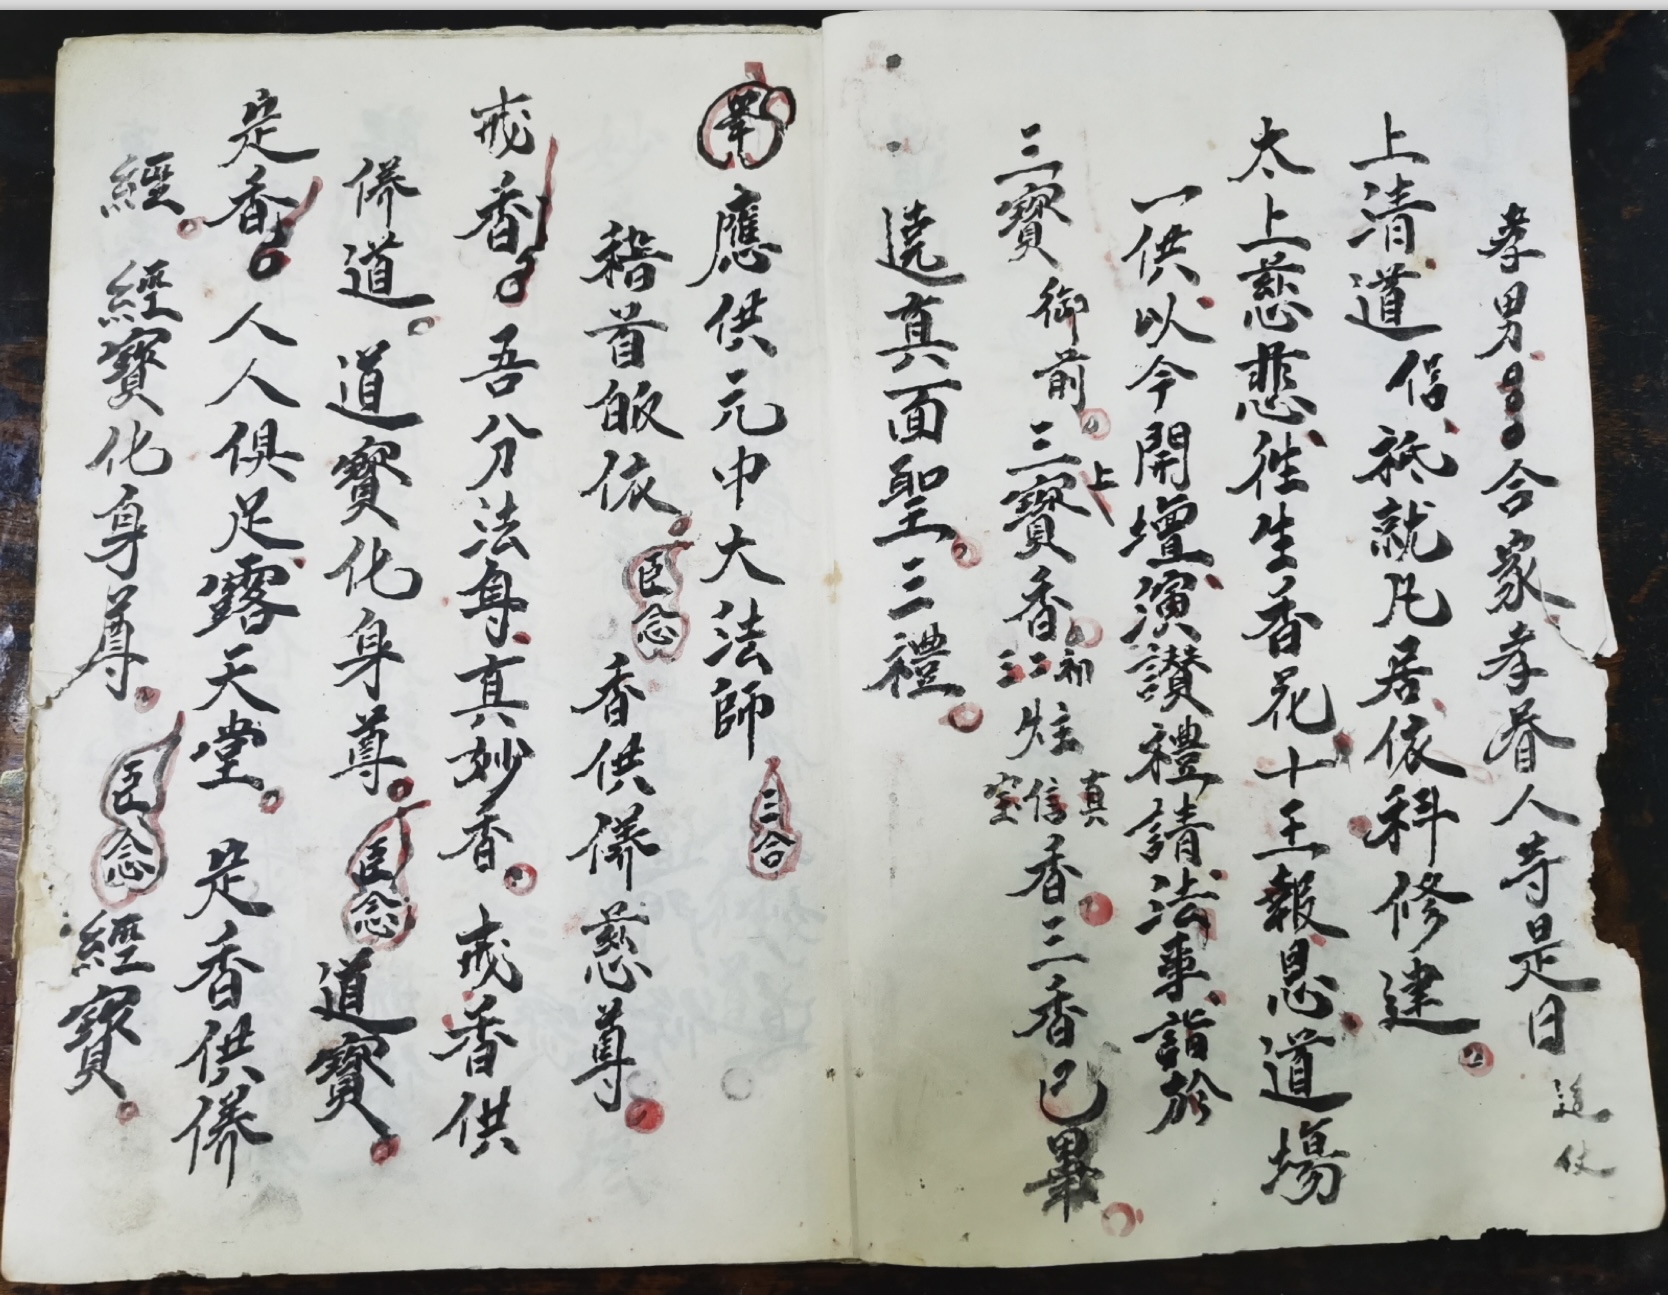 孝男合家孝眷人等是日
上清道侶祗就凡居依科修建
太上慈悲往生香花十王報恩道場
一供以今開壇演讃禮請法事詣於
三寶御前三寶上香初二三炷真信寔香三香已畢
遶真面聖三禮
舉應供元中大法師三合
稽首皈依臣念香供養慈尊
戒香吾分法身真妙香戒香供
養道道寶化身尊臣念道寶
是香人人俱足露天堂是香供養
經經寶化身尊臣念經寶